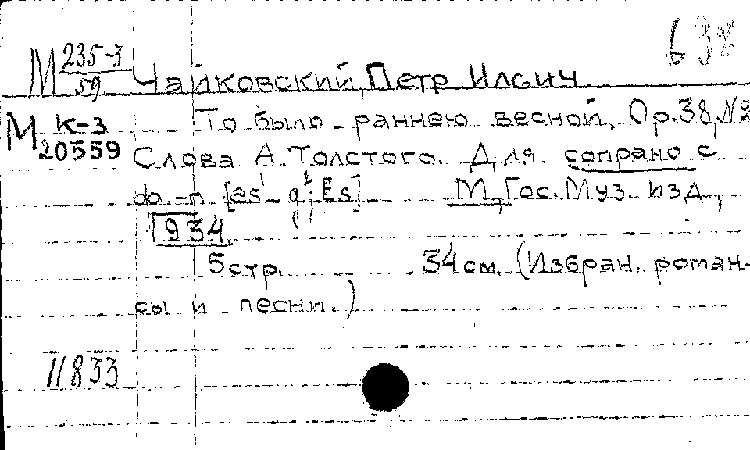 638
М 235-3/59 Чайковский, Петр Ильич
М К-3 20559 То было раннею весной, Ор. 38, №2
Слова А. Толстого. Для сопрано с
ф.-п. [as¹ - g²; Es] М., Гос. Муз. изд,
1934
5 стр. 34 см. (Избран. роман-
сы и песни.)
11833